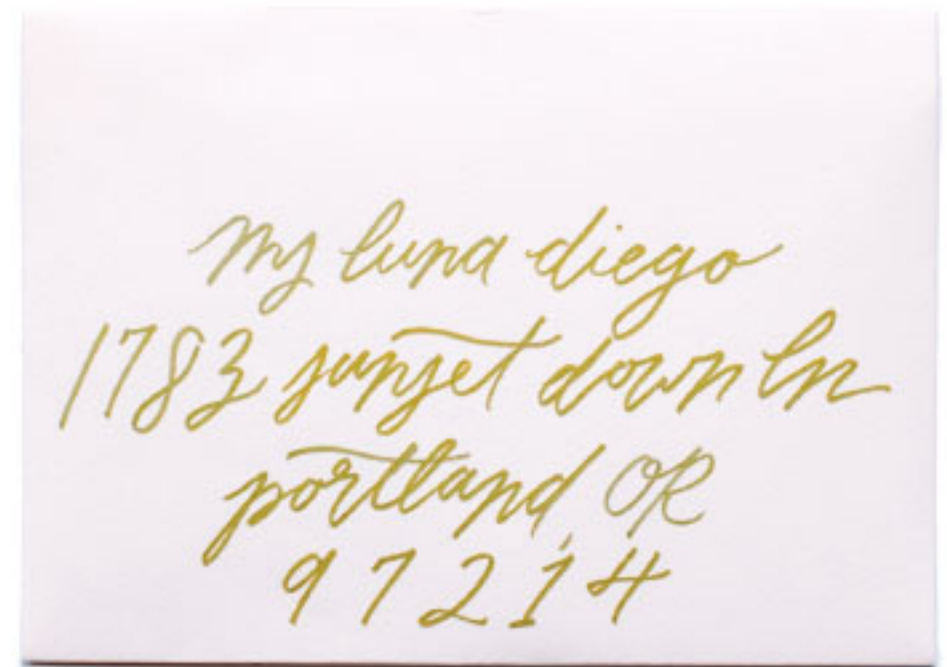 ms luna diego
1783 sunset down ln
portland, OR
97214